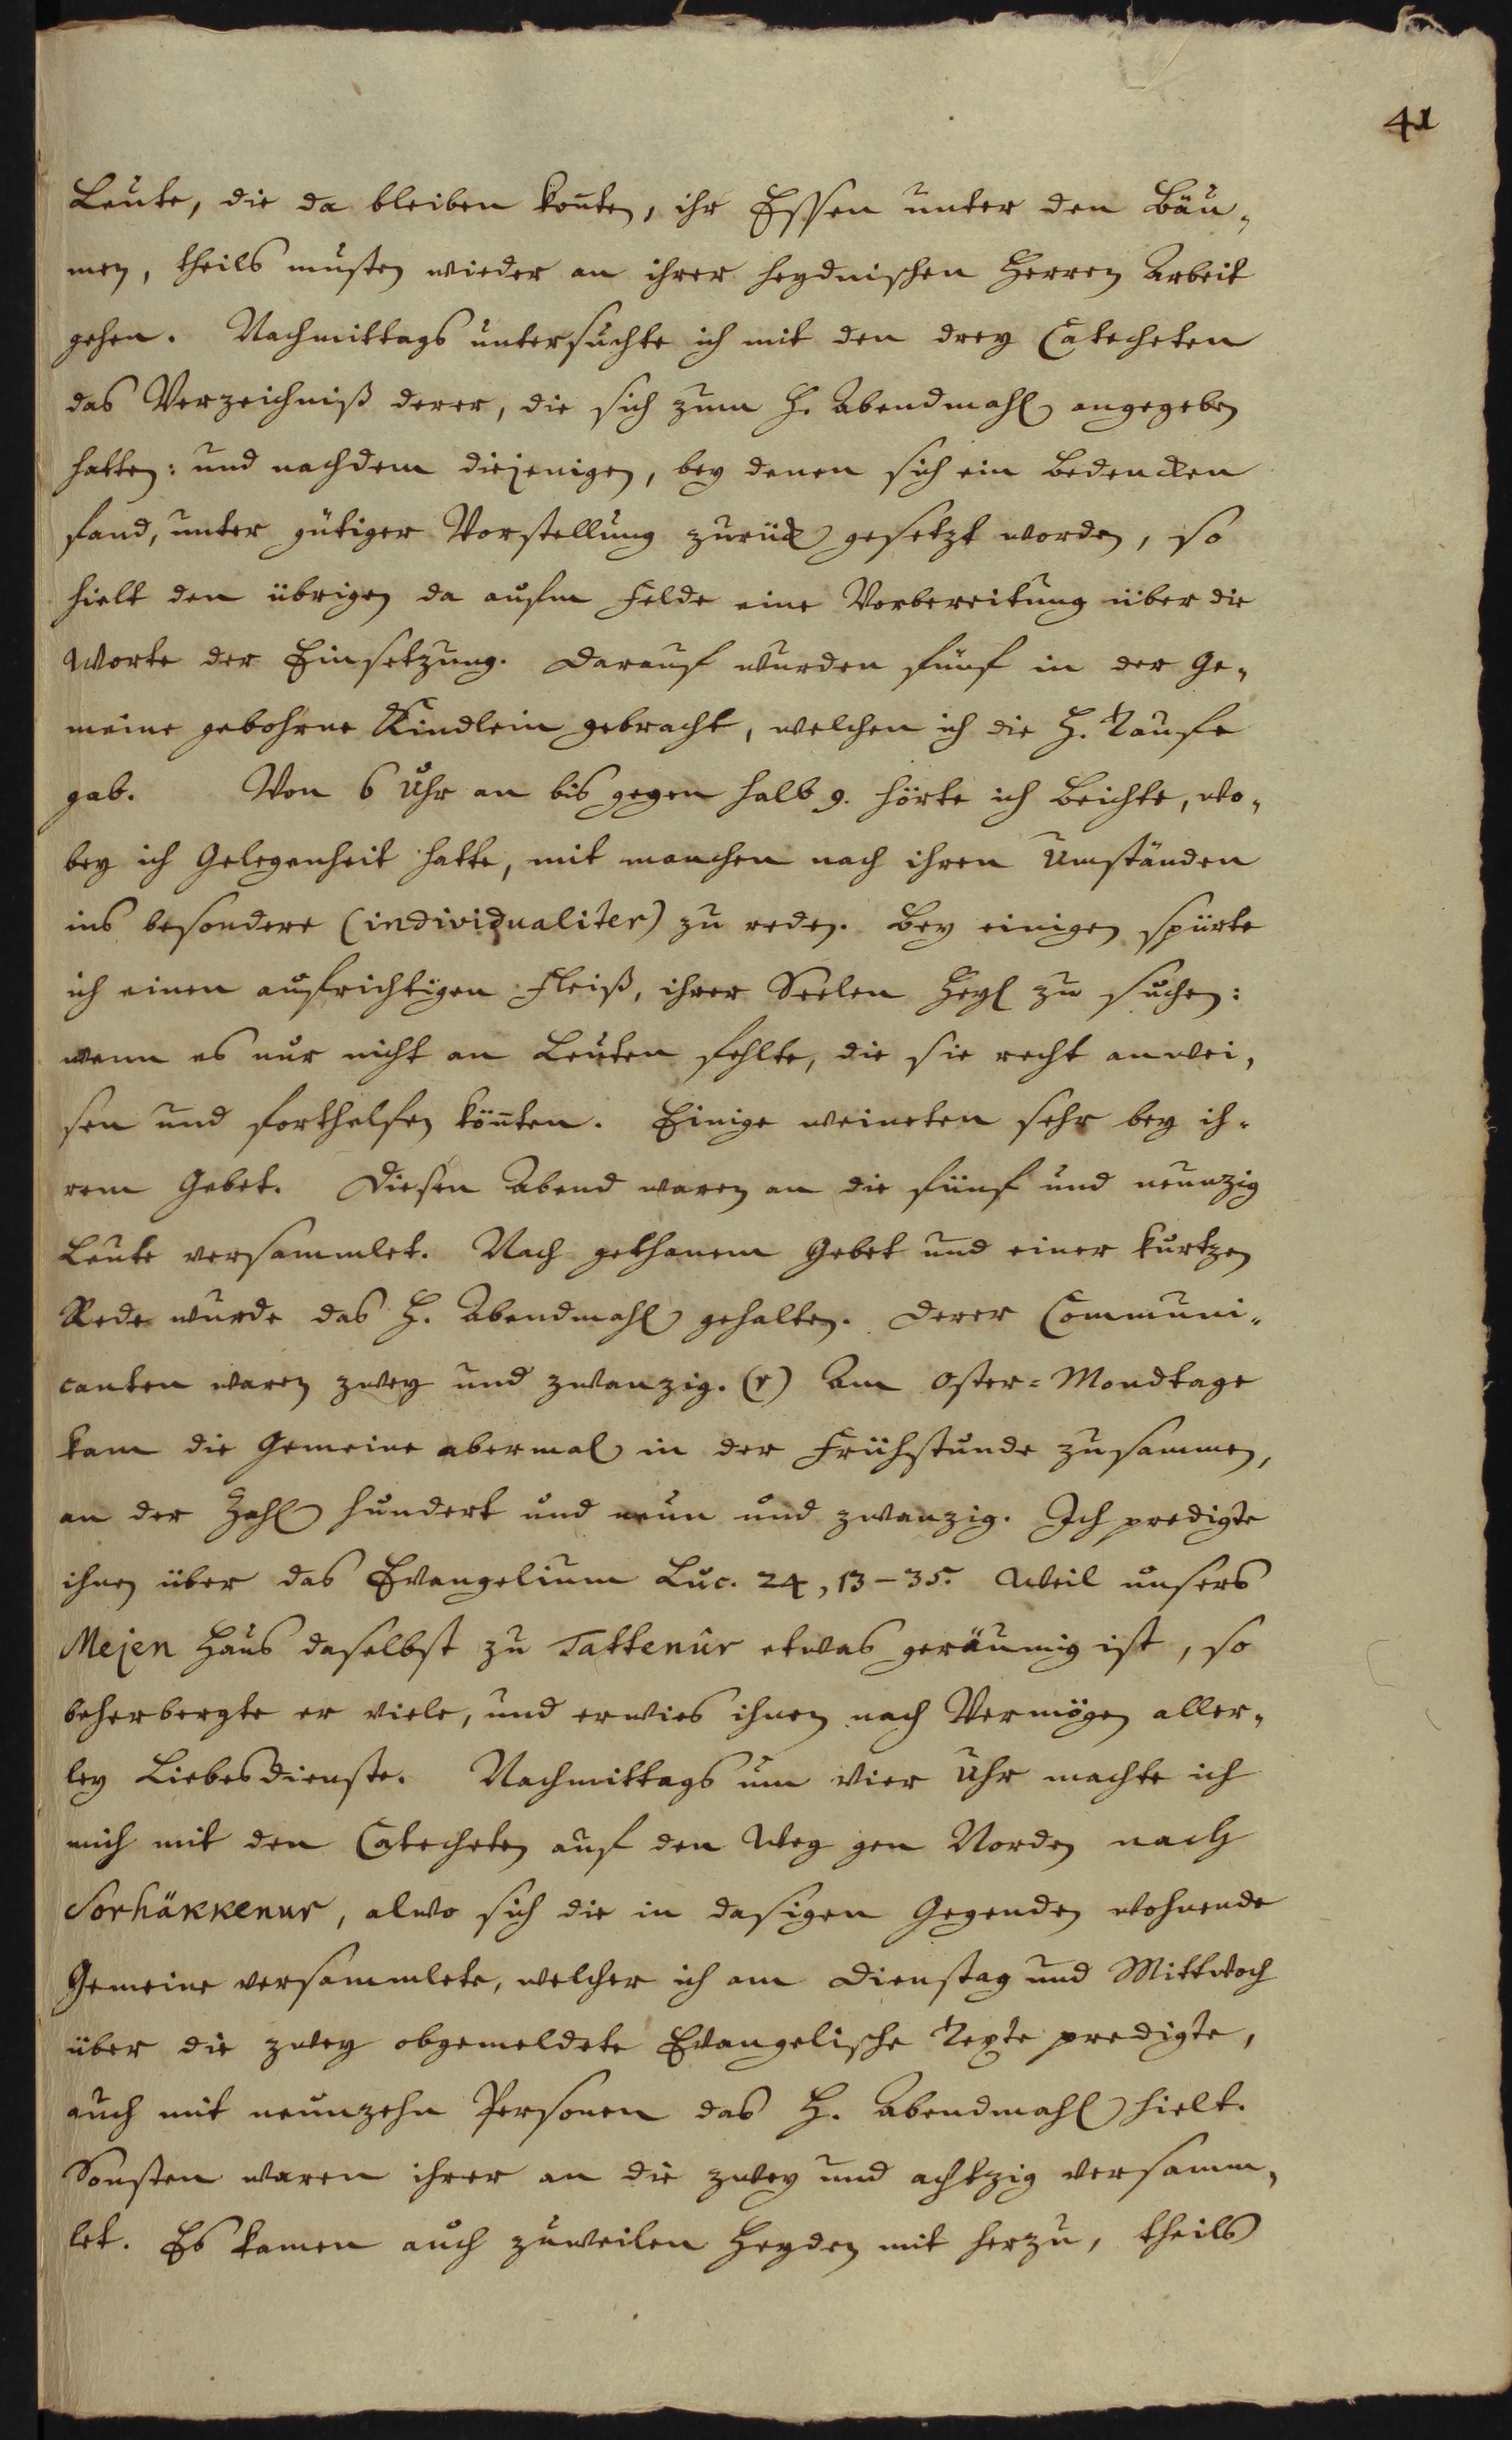 41
Leute, die da bleiben kon̄ten, ihr Essen unter den Bäu-
men, theils musten wieder an ihrer heydnischen Herren Arbeit
gehen. Nachmittags untersuchte ich mit den drey Catecheten
das Verzeichniß derer, die sich zum H. Abendmahl angegeben
hatten: und nachdem diejenigen, bey denen sich ein Bedencken
fand, unter gütiger Vorstellung zurück gesetzt worden, so
hielt den übrigen da aufm Felde eine Vorbereitung über die
Worte der Einsetzung. Darauf wurden fünf in der Ge-
meine gebohrne Kindlein gebracht, welchen ich die H. Taufe
gab. Von 6 Uhr an bis gegen halb 9. hörte ich Beichte, wo-
bey ich Gelegenheit hatte, mit manchen nach ihren Umständen
ins besondere (individualiter) zu reden. Bey einigen spürte
ich einen aufrichtigen Fleiß, ihrer Seelen Heyl zu suchen:
wenn es nur nicht an Leuten fehlte, die sie recht anwei-
sen und forthelfen kön̄ten. Einige weineten sehr bey ih-
rem Gebet. Diesen Abend waren an die fünf und neunzig
Leute versammlet. Nach gethanem Gebet und einer kurtzen
Rede wurde das H. Abendmahl gehalten. Derer Communi-
canten waren zwey und zwanzig. (r) Am Oster-Mondtage
kam die Gemeine abermal in der Frühstunde zusammen,
an der Zahl hundert und neun und zwanzig. Ich predigte
ihnen über das Evangelium Luc. 24, 13-35. Weil unsers
Mejen Haus daselbst zu Tattenûr etwas geräumig ist, so
beherbergte er viele, und erwies ihnen nach Vermögen aller-
ley Liebesdienste. Nachmittags um vier Uhr machte ich
mich mit den Catecheten auf den Weg gen Norden nach
Sorhäkkenur, alwo sich die in dasigen Gegenden wohnende
Gemeine versammlete, welcher ich am Dienstag und Mittwoch
über die zwey obgemeldete Evangelische Texte predigte,
auch mit neunzehn Personen das H. Abendmahl hielt.
Sonsten waren ihrer an die zwey und achtzig versamm-
let. Es kamen auch zuweilen Heyden mit herzu, theils